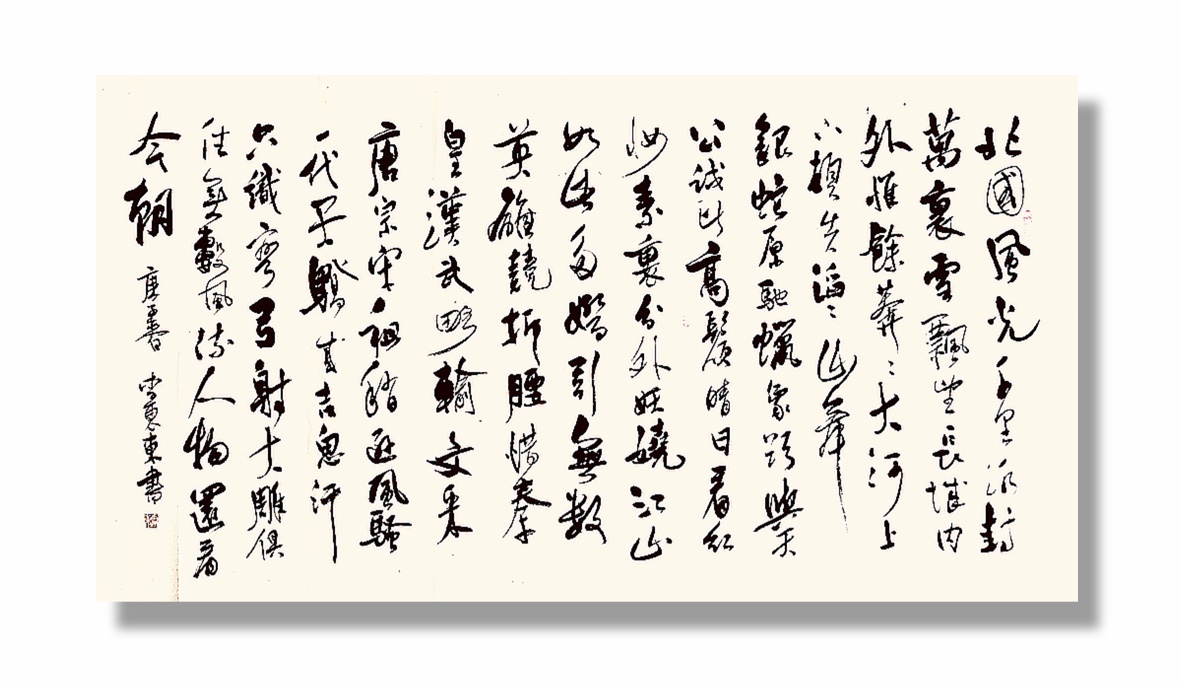 北國風光千里冰封
萬裏雪飄望長城內
外惟餘莽〻大河上
下頓失滔〻山舞
銀蛇原馳蠟象欲與天
公試比高鬚晴日看紅
妝素裹分外妖嬈江山
如此多嬌引無數
英雄競折腰惜秦
皇漢武略輸文采
唐宗宋祖稍遜風騷
一代天驕成吉思汗
只識彎弓射大雕俱
往矣數風流人物還看
今朝
東書